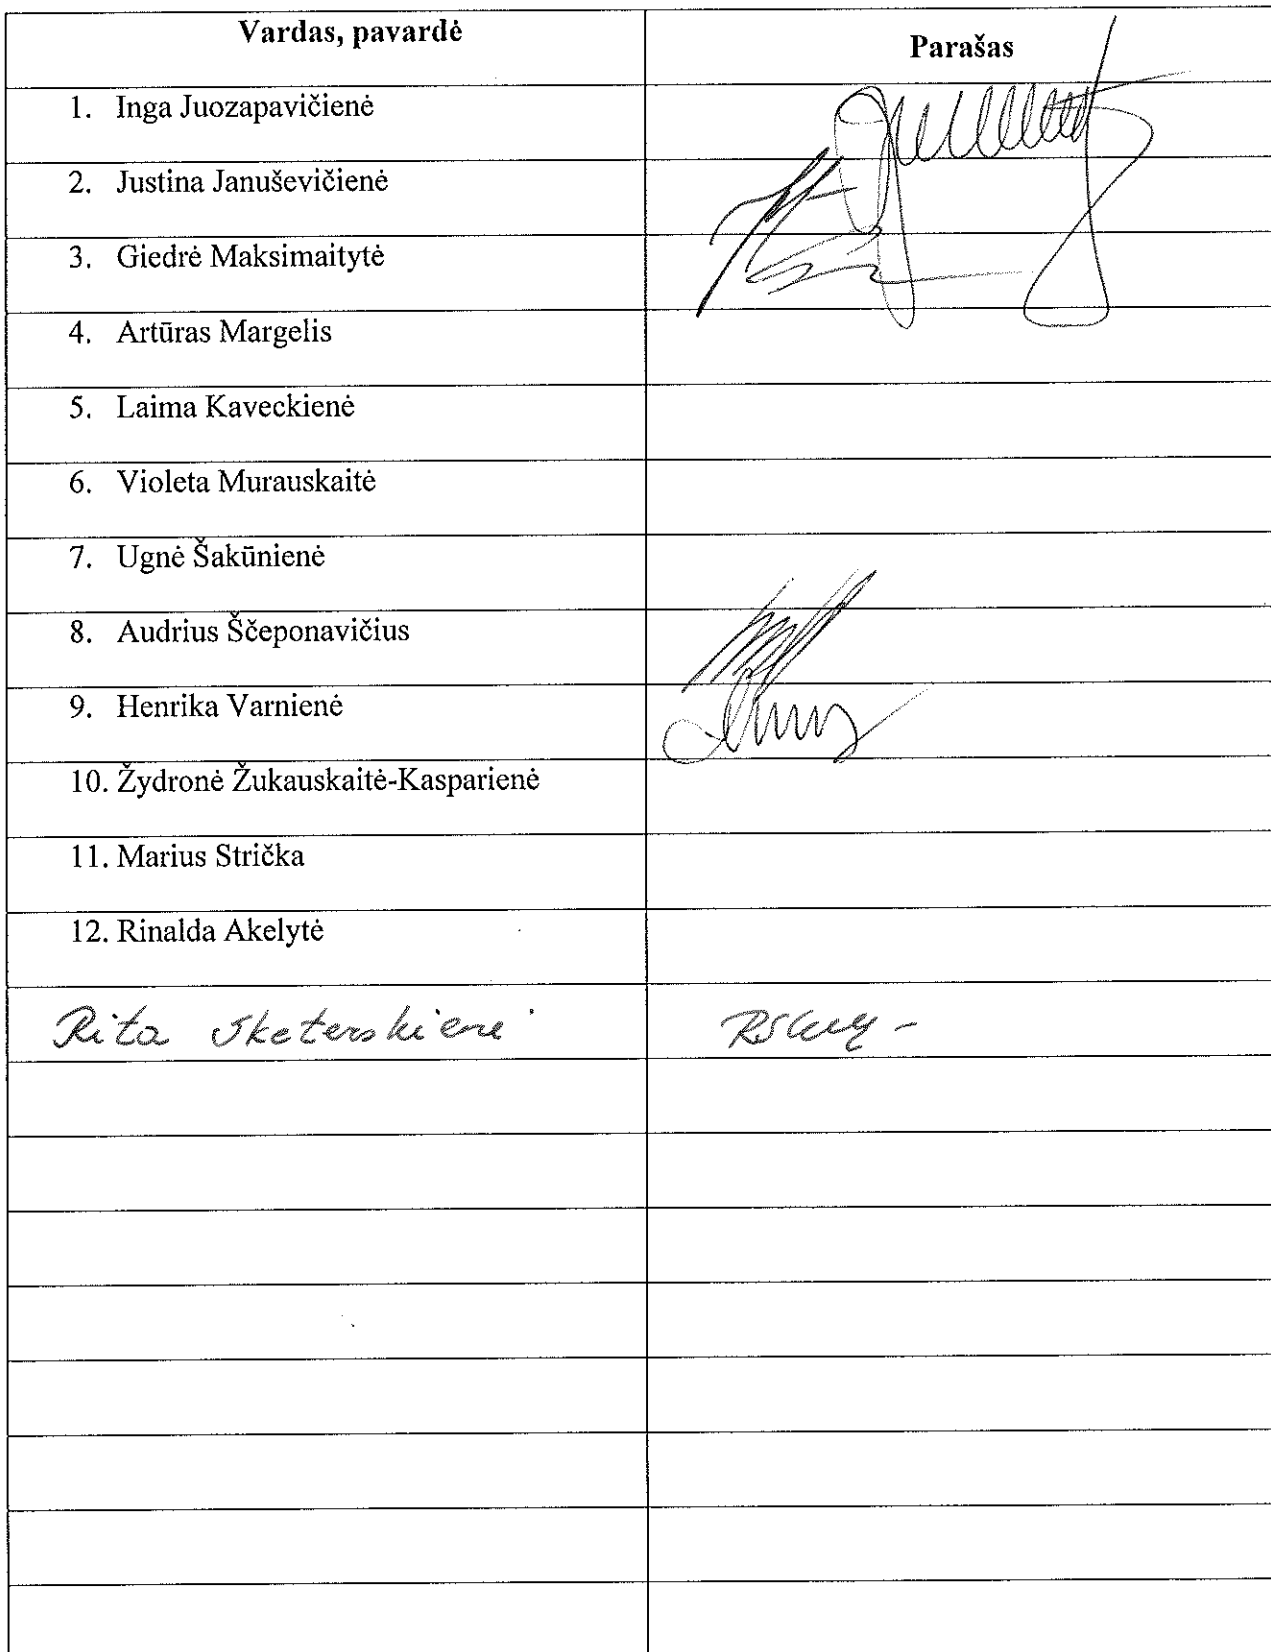 Vardas, pavardė
Parašas
1. Inga Juozapavičienė
2. Justina Januševičienė
3. Giedrė Maksimaitytė
4. Artūras Margelis
5. Laima Kaveckienė
6. Violeta Murauskaitė
7. Ugnė Šakūnienė
8. Audrius Ščeponavičius
9. Henrika Varnienė
10. Žydronė Žukauskaitė-Kasparienė
11. Marius Strička
12. Rinalda Akelytė
Rita Sketerskienė